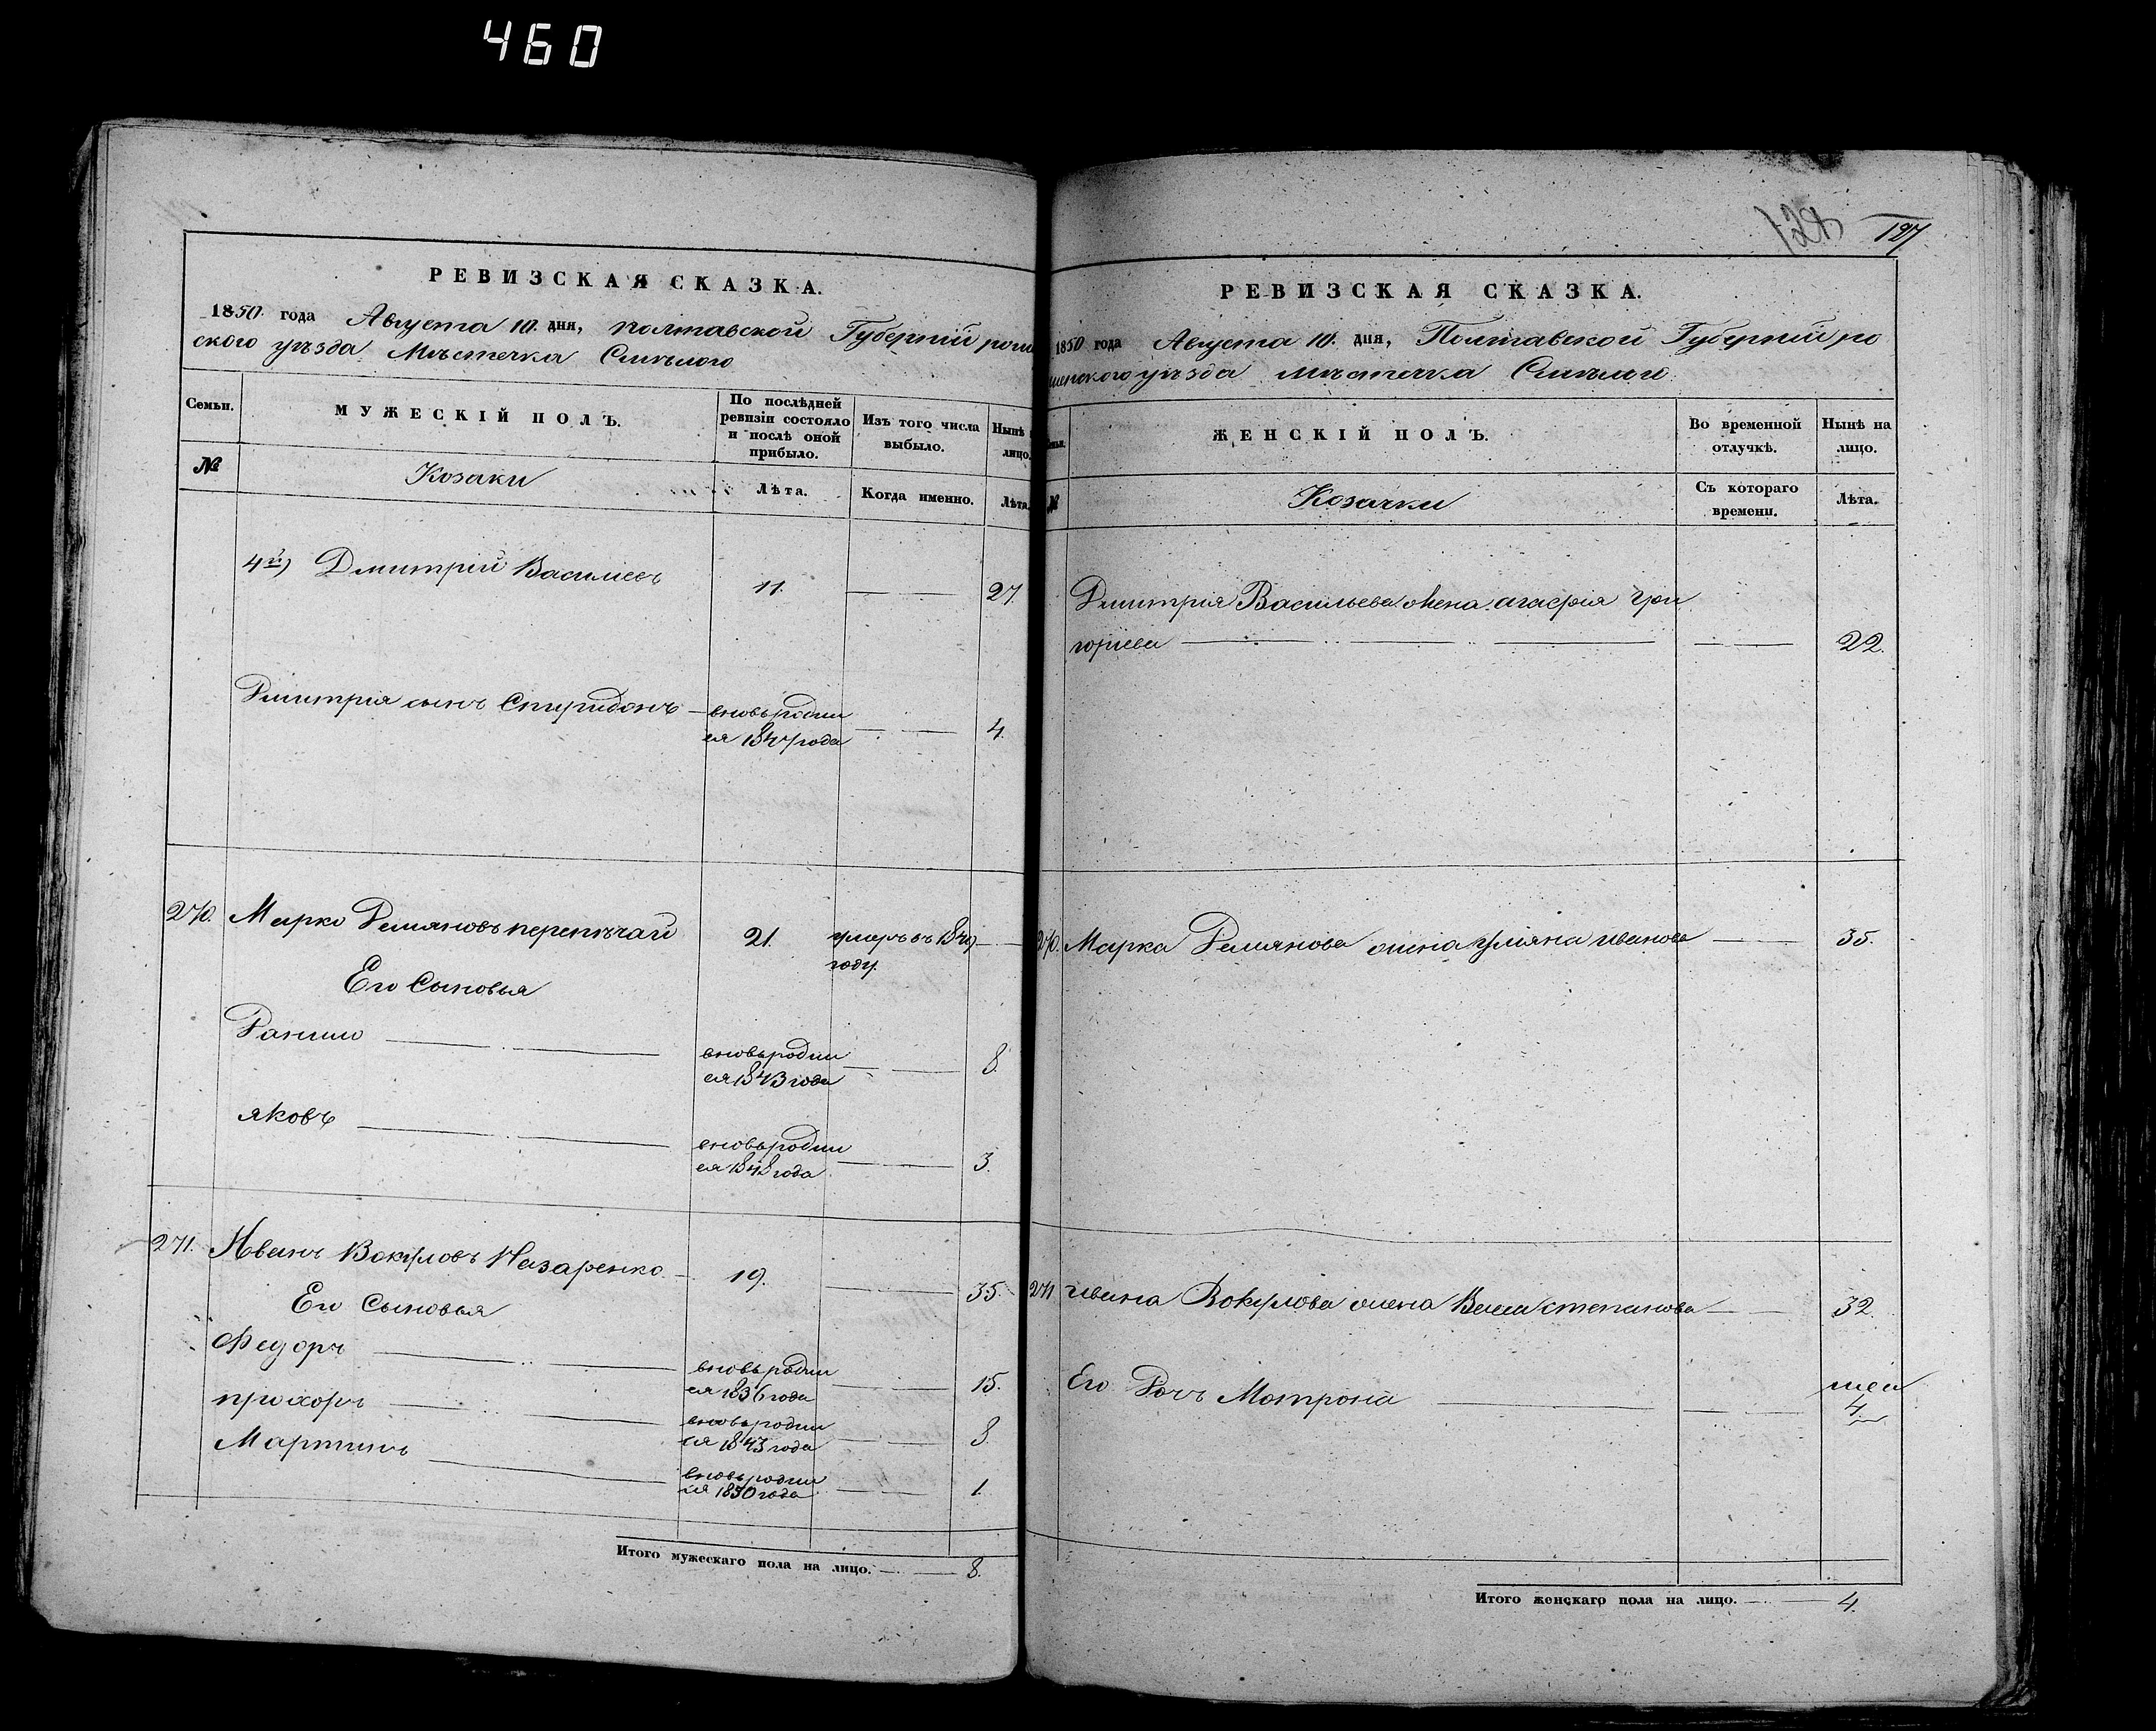 460
РЕВИЗСКАЯ СКАЗКА.
1850 года Августа 10. дня, полтавской Губерніи роме
ского уѣзда Мѣстечка Смѣлого
Семьи.
МУЖЕСКІЙ ПОЛЪ.
По послѣдней ревизіи состояло и послѣ оной прибыло.
Изъ того числа выбыло.
Нынѣ
лицо.
№
Козаки
Лѣта.
Когда именно.
Лѣта.
4й) Дмитрій Василіевъ 11. 27.
Дмитрія сынъ Спиридонъ вновь родил
ся 1847 года 4.
270. Марко Демяновъ перепѣчай 21. умеръ въ 1849
году.
Его Сыновья
Данило вновь родил
ся 1843 года 8.
яковъ вновь родил
ся 1848 года 3.
271. Иванъ Вакуловъ Назаренко 19. 35.
Его Сыновья
Федоръ вновь родил
ся 1836 года 15.
прохоръ вновь родил
ся 1843 года 8.
Мартинъ вновь родил
ся 1850 года 1.
Итого мужескаго пола на лицо. 8.
128 127
РЕВИЗСКАЯ СКАЗКА.
1850 года Августа 10. дня, Полтавской Губерніи ро
менского уѣзда Мѣстечка Смѣлого
ЖЕНСКІЙ ПОЛЪ.
Во временной отлучкѣ.
Нынѣ на лицо.
№
Козачки
Съ котораго времени.
Лѣта.
Дмитрія Васильева жена агафія Гри
горіева 22.
270. Марка Демянова жена уліяна иванова 35.
271 ивана Вокулова жена степанова 32.
Его Дочъ Мотрона 4
Итого женскаго пола на лицо. 4.